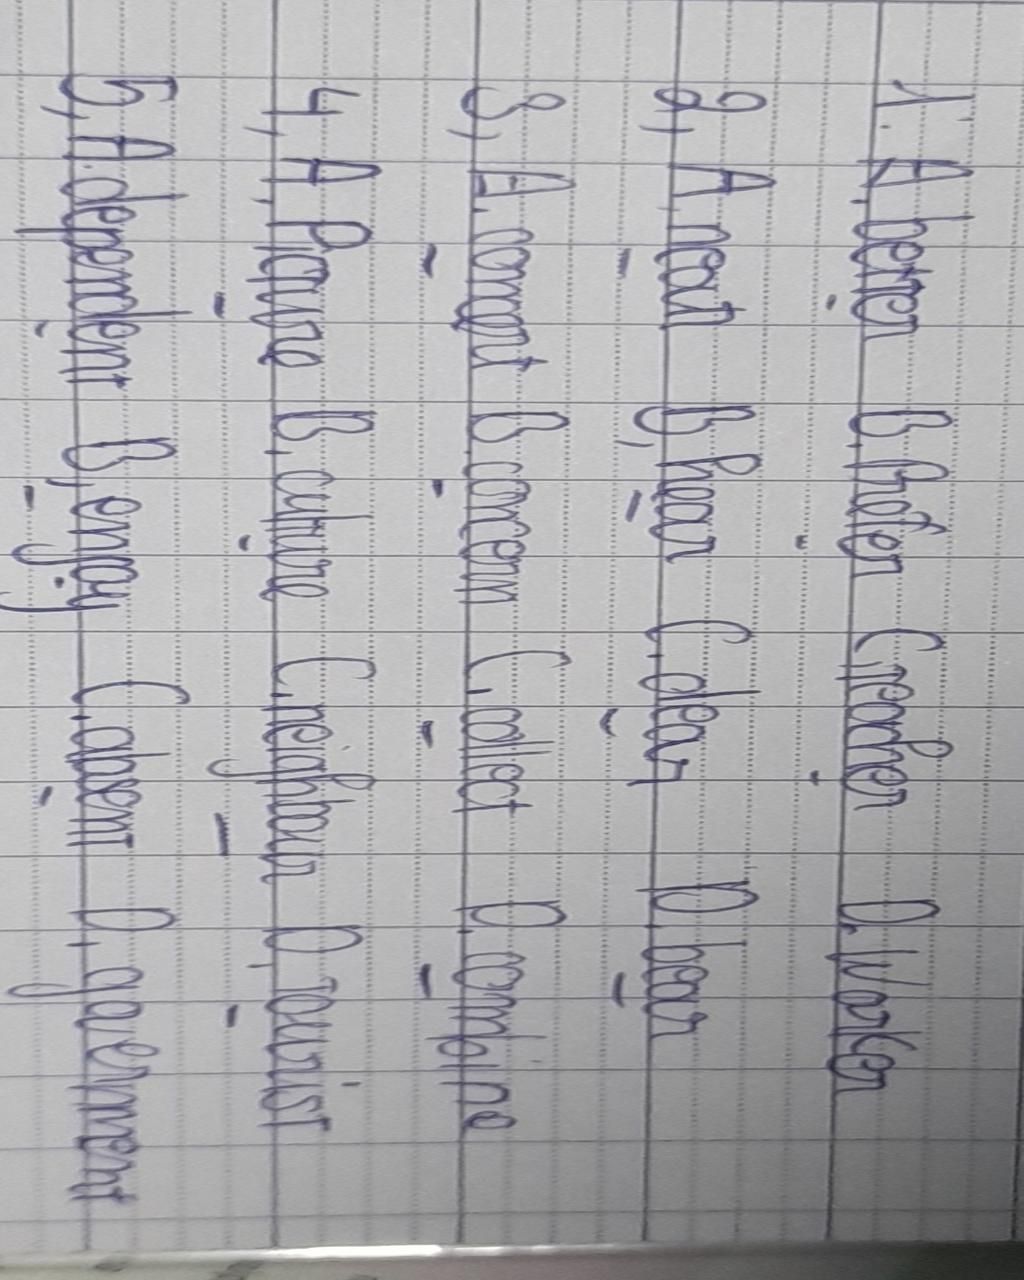 1. A. better B. prefer C. teacher D. worker
2, A. near B, hear C. dear D. bear
3, A. concert B. concern C. collect D. combine
4, A, picture B. culture C. neighbour D, tourist
5, A. dependent B, enjoy C. absent D. government